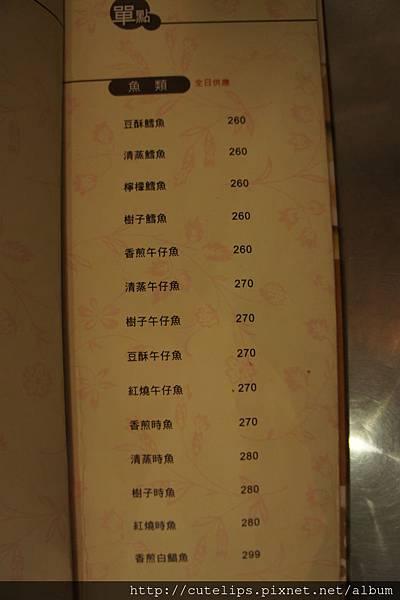 單點
魚類 全日供應
豆酥鱈魚 260
清蒸鱈魚 260
檸檬鱈魚 260
樹子鱈魚 260
香煎午仔魚 260
清蒸午仔魚 270
樹子午仔魚 270
豆酥午仔魚 270
紅燒午仔魚 270
香煎時魚 270
清蒸時魚 280
樹子時魚 280
紅燒時魚 280
香煎白鯧魚 299
http://cutelips.pixnet.net/album